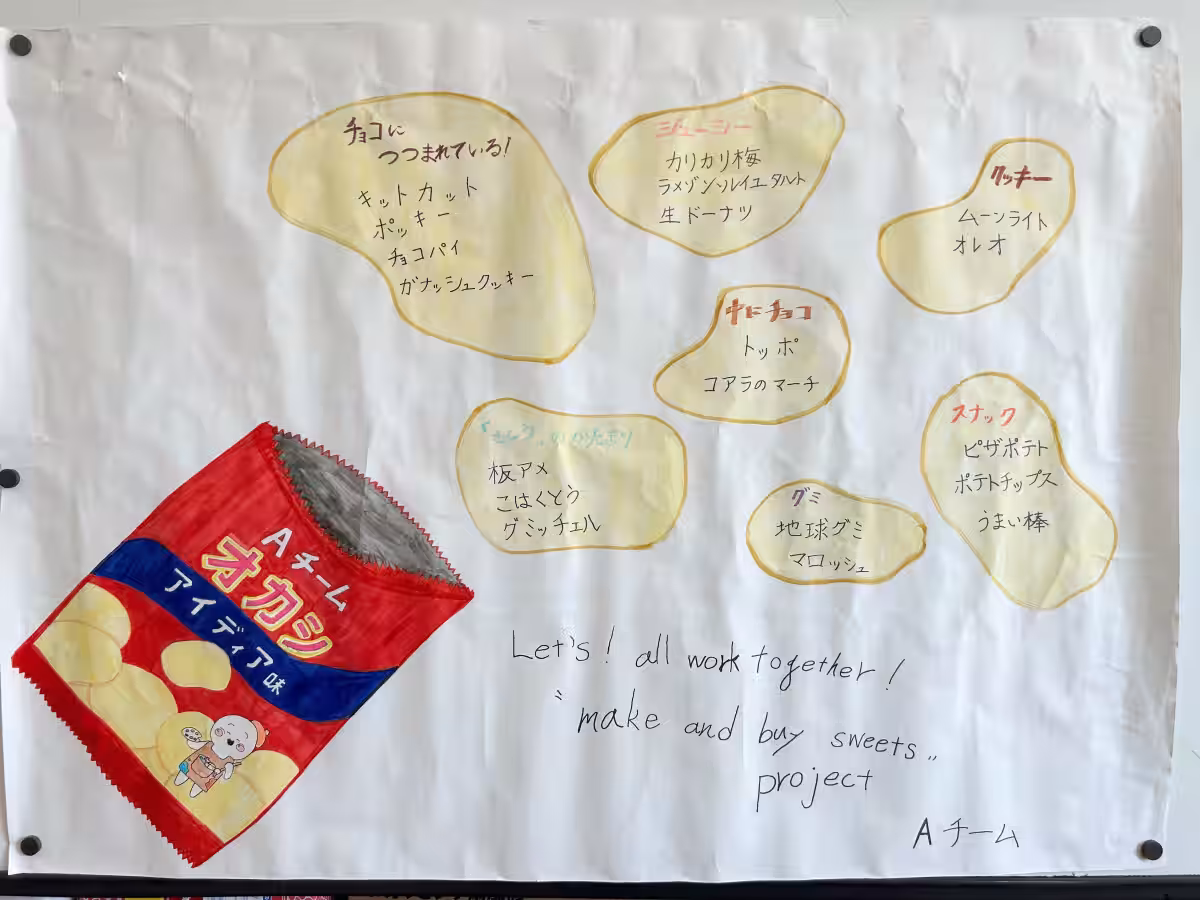 チョコに
つつまれている!
キットカット
ポッキー
チョコパイ
ガナッシュクッキー
ジューシー
カリカリ梅
ラメゾンソレイユタルト
生ドーナツ
クッキー
ムーンライト
オレオ
中にチョコ
トッポ
コアラのマーチ
スナック
ピザポテト
ポテトチップス
うまい棒
のかたまり
板アメ
こはくとう
グミッチェル
グミ
地球グミ
マロッシュ
Aチーム
オカシ
アイディア味
Let's! all work together!
"make and buy sweets"
project
Aチーム